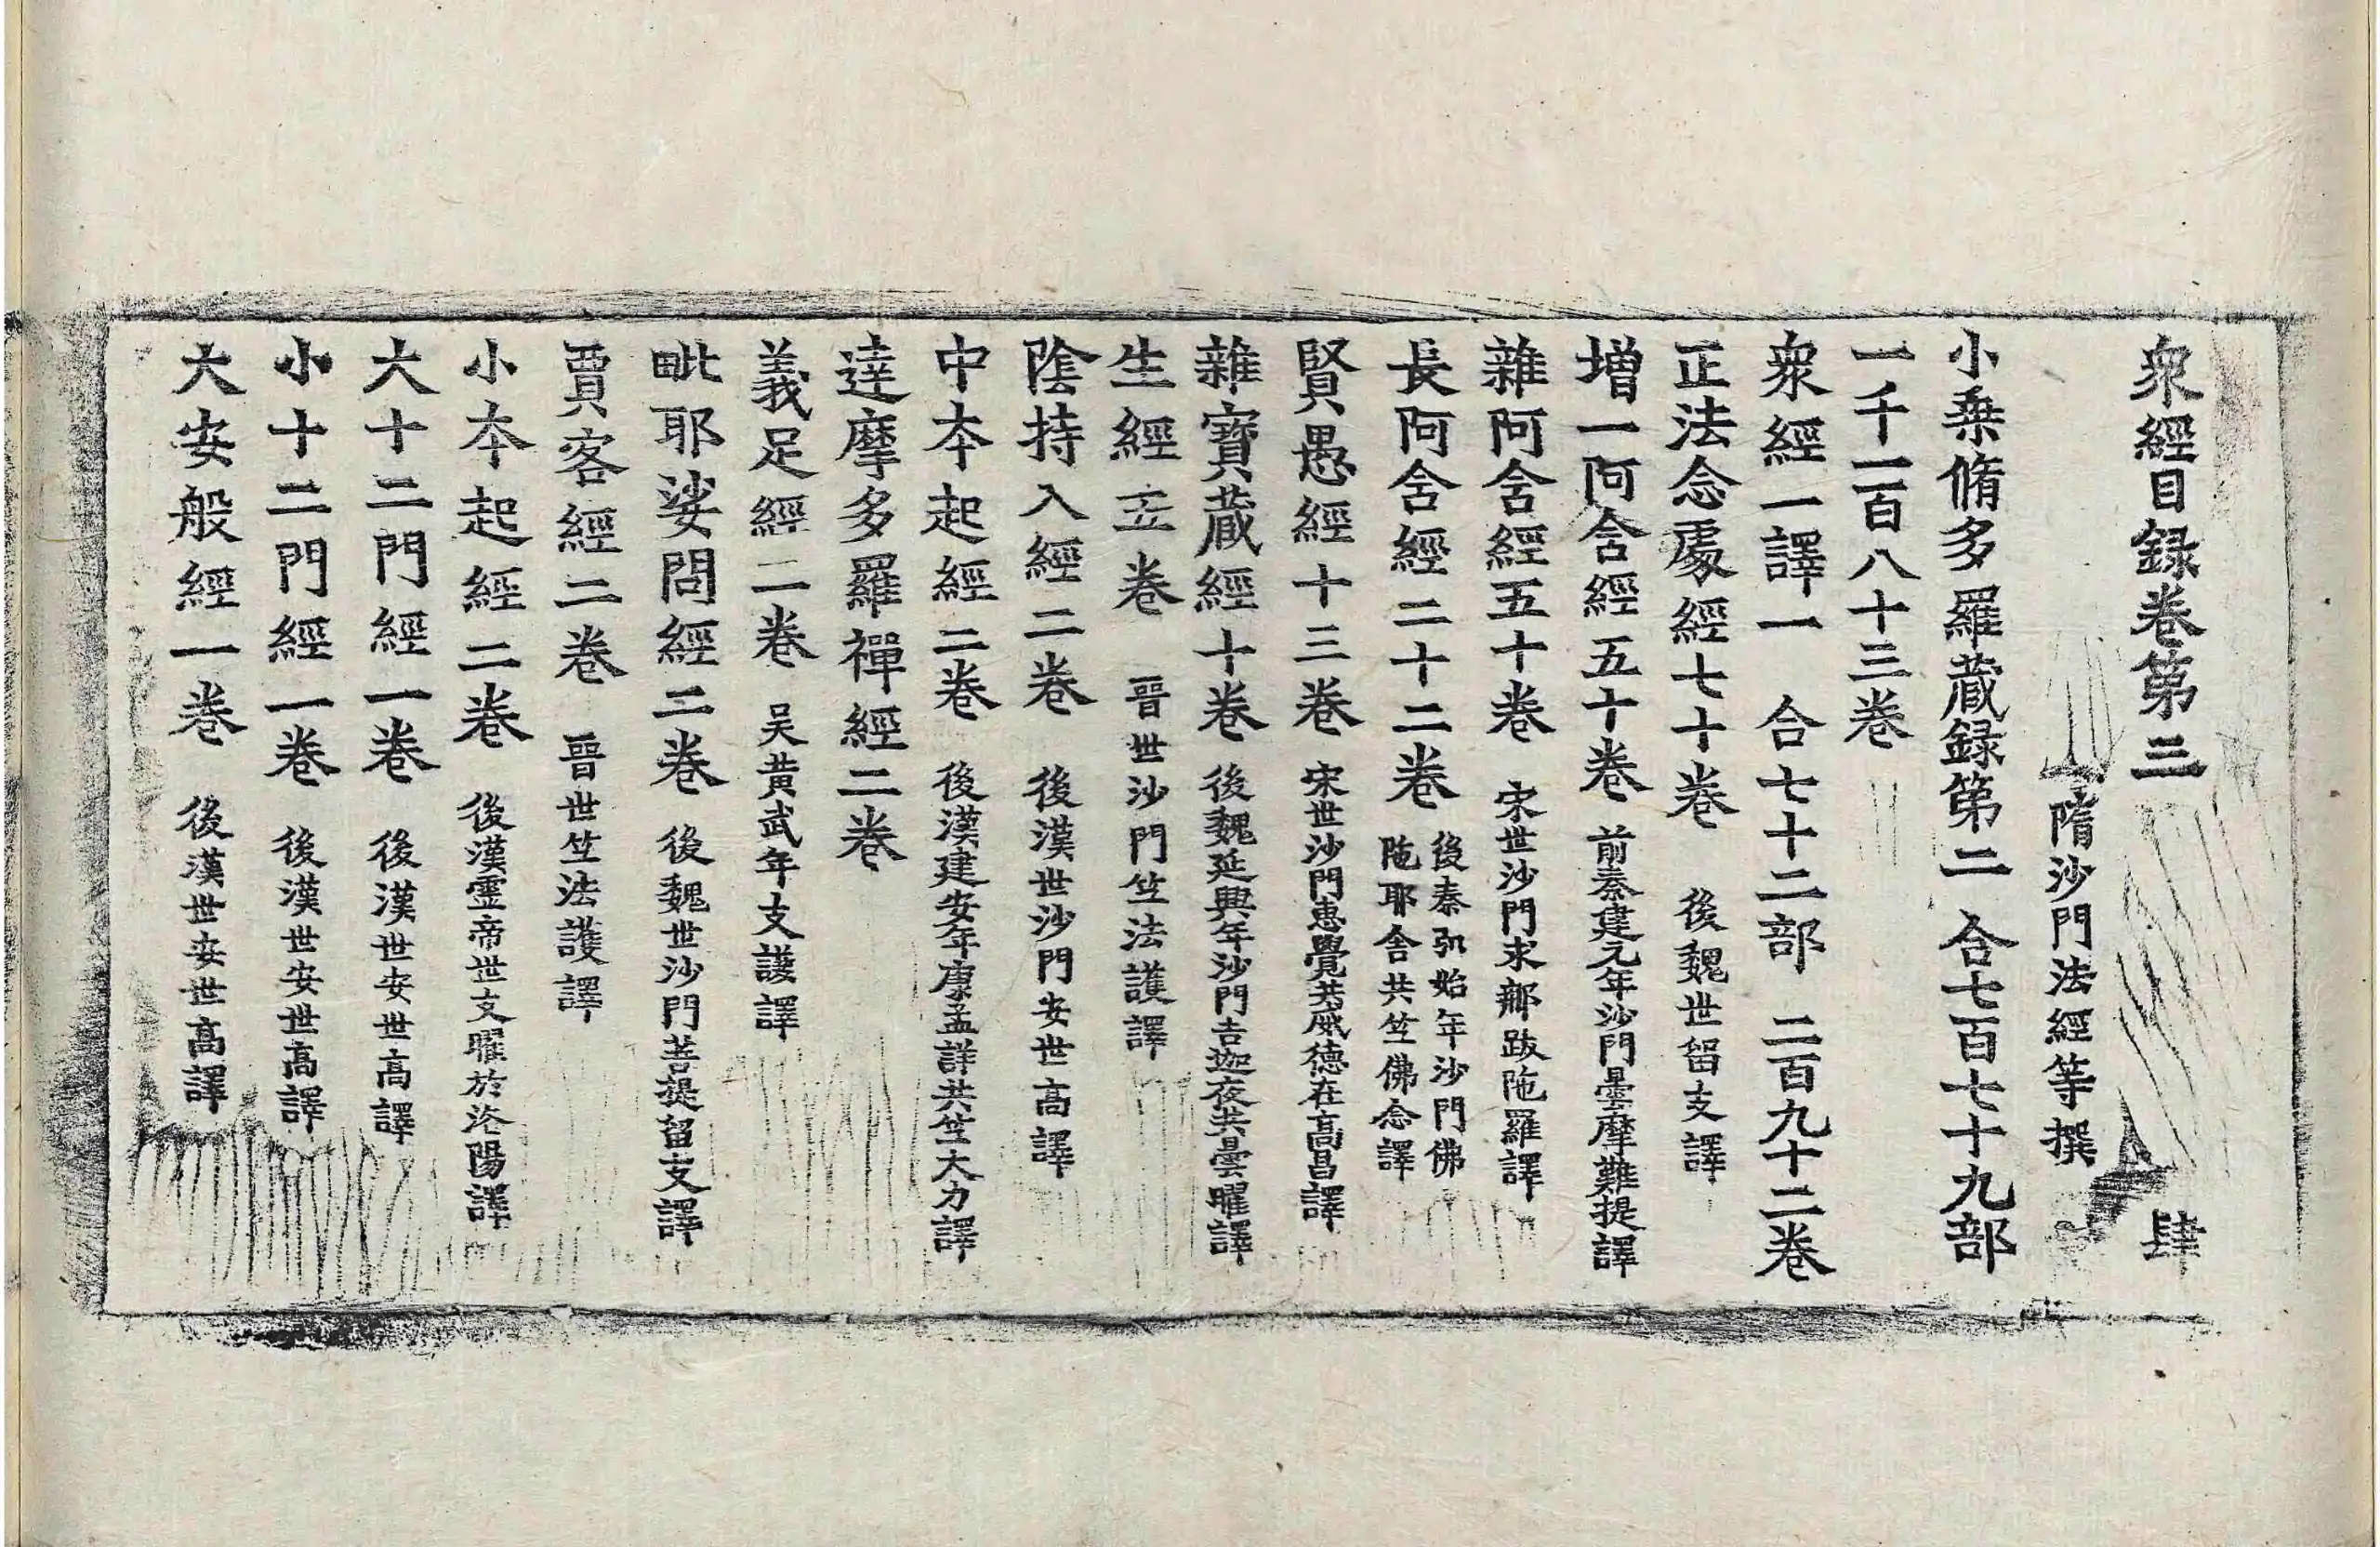 衆經目録卷第三 肆
隋沙門法經等撰
小乗脩多羅蔵録第二 合七百七十九部
一千二百八十三巻
衆經一譯一 合七十二部 二百九十二巻
正法念處經七十巻 後魏世留支譯
増一阿含經五十巻 前秦建元年沙門曇摩難提譯
雜阿含經五十巻 宋世沙門求那跋陁羅譯
長阿含經二十二巻 後秦弘始年沙門佛
陁耶舎共竺佛念譯
賢愚經十三巻 宋世沙門惠覺共威德在高昌譯
雜寶蔵經十巻 後魏延興年沙門吉迦夜共曇曜譯
生經五巻 晉世沙門竺法護譯
陰持入經二巻 後漢世沙門安世高譯
中夲起經二巻 後漢建安年康孟詳共竺大力譯
達摩多羅禪經二巻
義足經二巻 吴黄武年支謙譯
毗耶娑問經二巻 後魏世沙門菩提留支譯
賈客經二巻 晉世竺法護譯
小夲起經二巻 後漢靈帝世支曜於洛陽譯
大十二門經一巻 後漢世安世高譯
小十二門經一巻 後漢世安世高譯
大安般經一巻 後漢世安世高譯